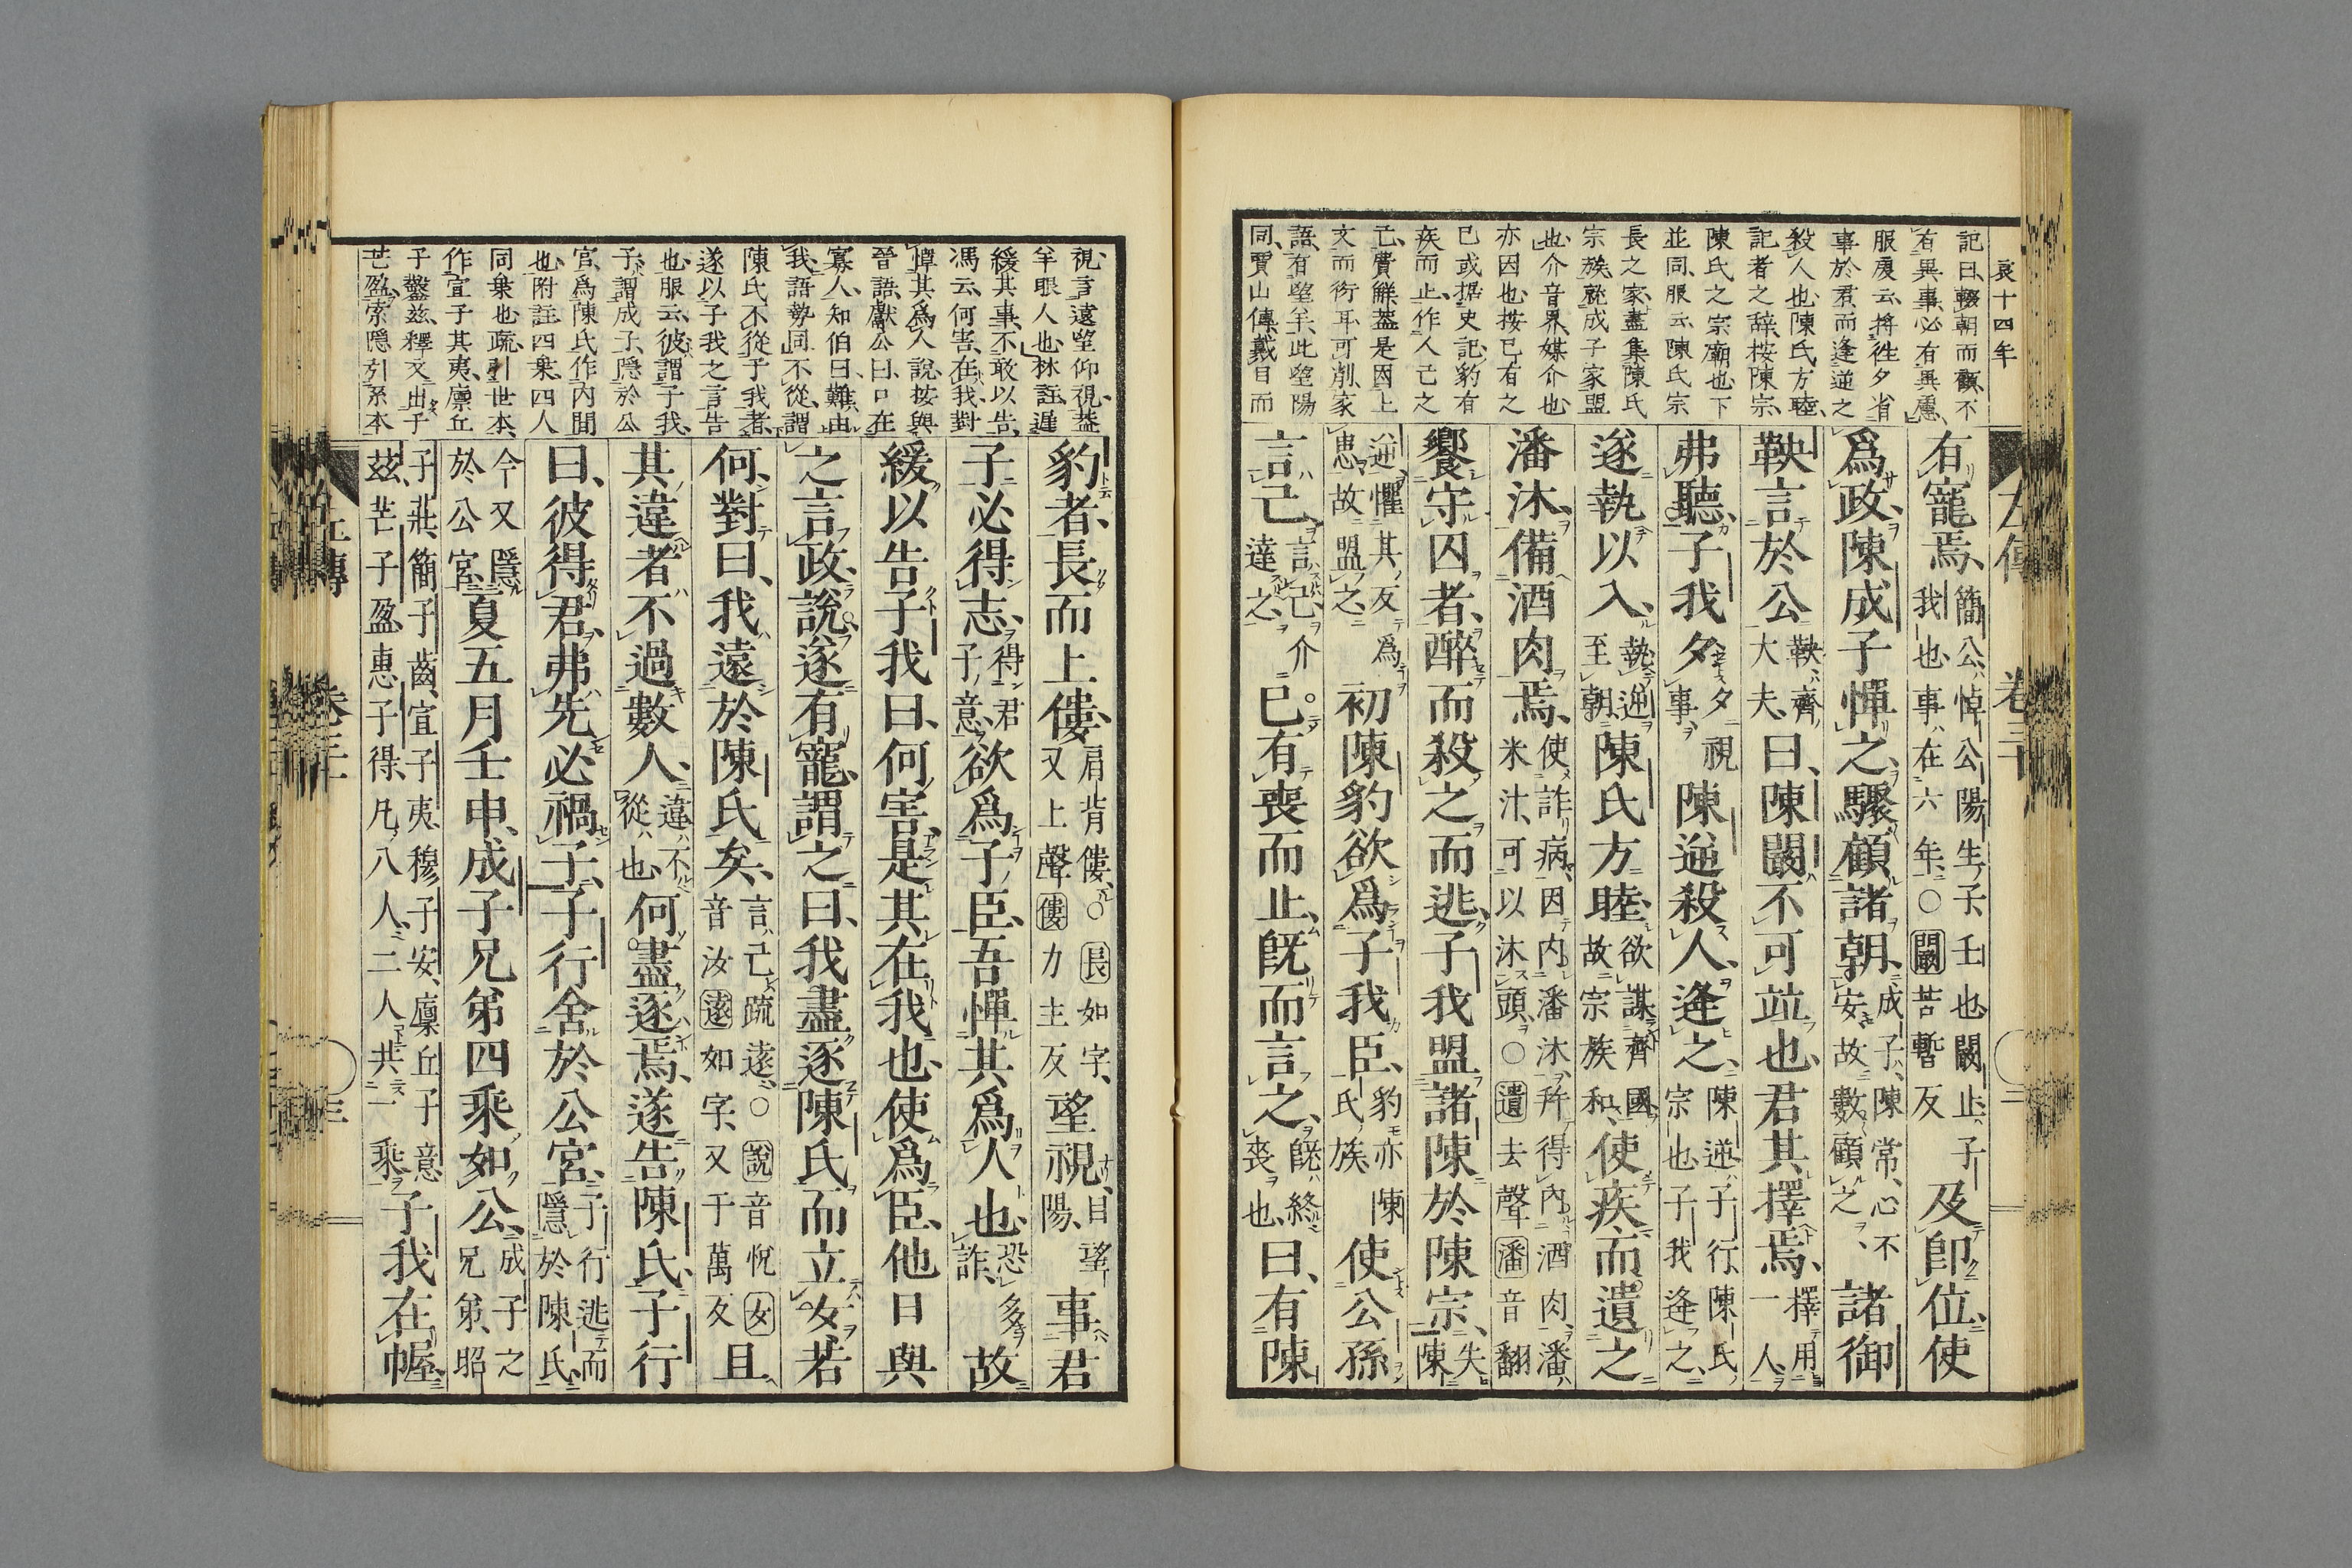 哀十四年
記曰輟朝而顧不
有異事必有異慮
服虔云徃夕省
事於君而逢逆之
殺人也陳氏方睦
記者之辭桉陳宗
陳氏之宗廟也下
並同服云陳氏宗
長之家盡集陳氏
宗族就成子家盟
也介音界媒介也
亦因也按已有之
已或據史記豹有
疾而止作人己之
己費觧蓋是因上
文而衍耳可削家
語有望羊此望陽
同賈山傳戴目而
左傳 卷三十
有寵焉簡公悼公陽生子壬也闞止子
我也事在六年○闞苦暫反及即位使
爲政陳成子憚之驟顧諸朝成子陳常心不
安故數顧之諸御
鞅言於公鞅齊
大夫曰陳闞不可竝也君其擇焉擇用
一人
弗聽子我夕夕視
事陳逆殺人逢之陳逆子行陳氏
宗也子我逢之
遂執以入執逆
至朝陳氏方睦欲謀齊國
故宗族和使疾而遺之
潘沐備酒肉焉使詐病因内潘沐幷得內酒肉潘
米汁可以沐頭○遺去聲潘音翻
饗守囚者醉而殺之而逃子我盟諸陳於陳宗失
陳
逆懼其反爲
患故盟之初陳豹欲爲子我臣豹亦陳
氏族使公孫
言己言己介
達之已有喪而止旣而言之旣終
喪也曰有陳
視言遠望仰視蓋
羊眼人也林註遲
緩其事不敢以告
馮云何害在我對
憚其爲人說按與
晉語獻公曰口在
寡人知伯曰難由
我語勢同不從謂
陳氏不從子我者
遂以子我之言告
也服云彼謂子我
子謂成子隱於公
宮爲陳氏作內閒
也附註四乗四人
同乗也疏引世本
作宣子其夷廩丘
子鑿茲釋文出子
芒盈索隱引系本
豹者長而上僂肩背僂○長如字
又上聲僂力主反望視目望
陽事君
子必得志得君
子意欲爲子臣吾憚其爲人也恐多
詐故
緩以告子我曰何害是其在我也使爲臣他日與
之言政說遂有寵謂之曰我盡逐陳氏而立女若
何對曰我遠於陳氏矣言己疏遠○說音悅女
音汝遠如字又于萬反且
其違者不過數人違不
從也何盡逐焉遂告陳氏子行
曰彼得君弗先必禍子子行舍於公宮子行逃而
隱於陳氏
今又隱
於公宮夏五月壬申成子兄弟四乘如公成子之
兄弟昭
子莊簡子齒宣子夷穆子安廩丘子意
茲芒子盈惠子得凡八人二人共一乘子我在幄
左傳 卷三十 三